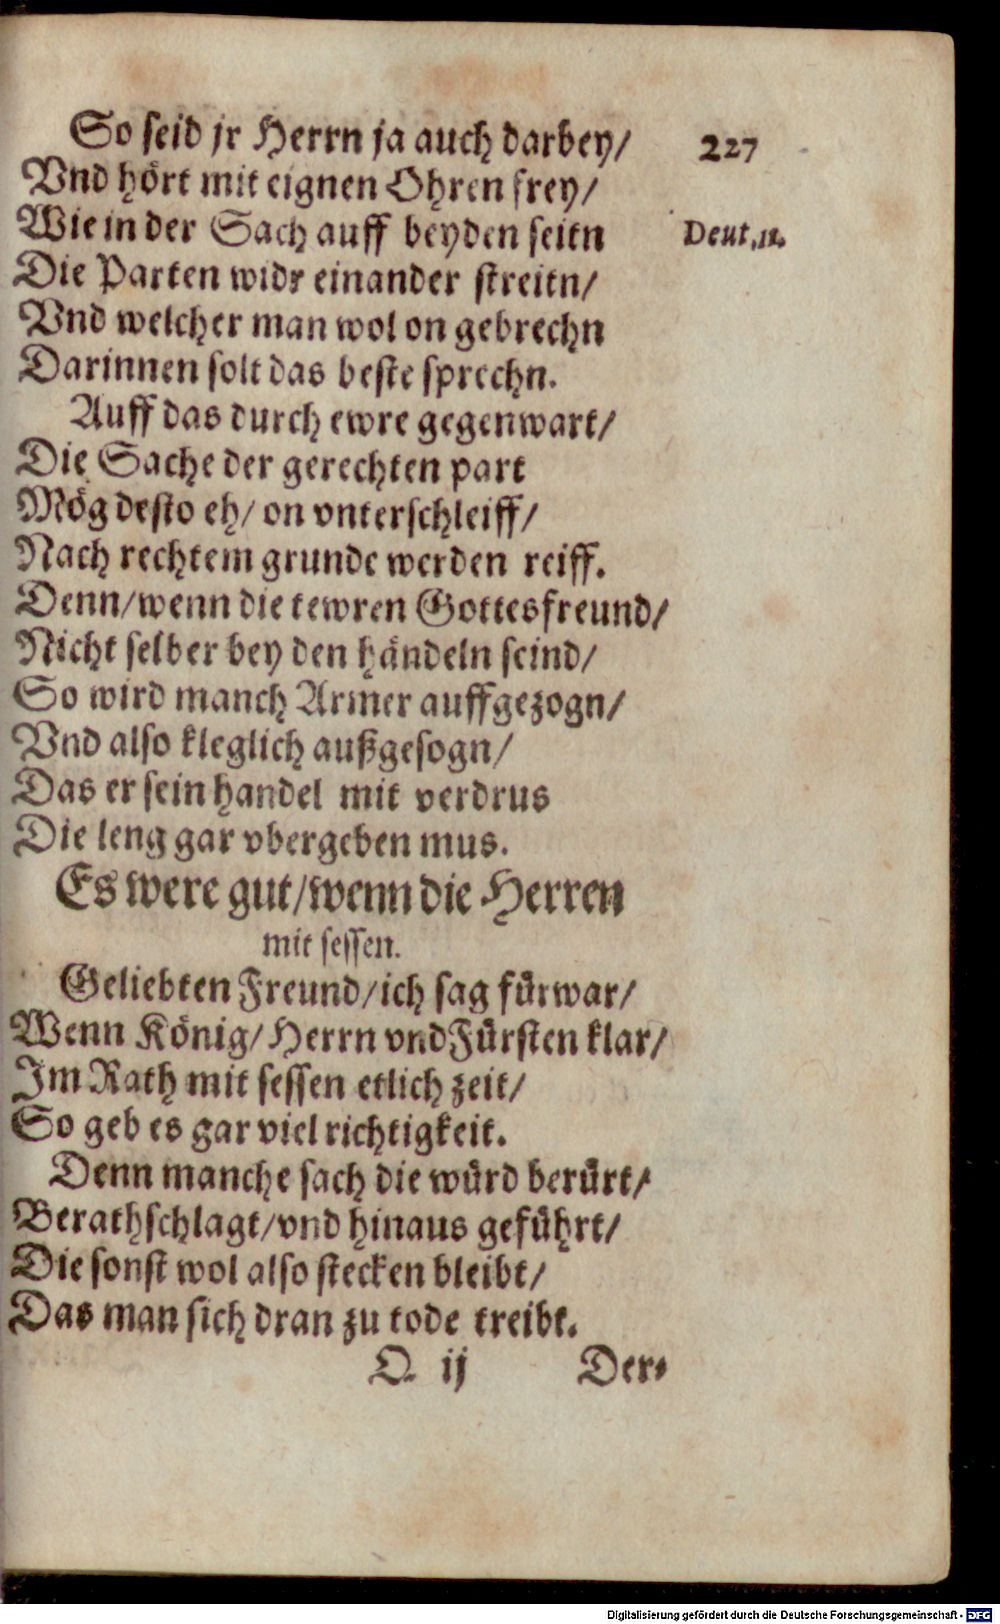 227
So seid jr Herrn ja auch darbey/
Vnd hört mit eignen Ohren frey/
Wie in der Sach auff beyden seitn
Deut. 11.
Die Parten widr einander streitn/
Vnd welcher man wol on gebrechn
Darinnen solt das beste sprechn.
Auff das durch ewre gegenwart/
Die Sache der gerechten part
Mög desto eh/ on vnterschleiff/
Nach rechtem grunde werden reiff.
Denn/wenn die tewren Gottesfreund/
Nicht selber bey den händeln seind/
So wird manch Armer auffgezogn/
Vnd also kleglich außgesogn/
Das er sein handel mit verdrus
Die leng gar vbergeben mus.
Es were gut/wenn die Herren
mit sessen.
Geliebten Freund/ich sag fürwar/
Wenn König/ Herrn vnd Fürsten klar/
Im Rath mit sessen etlich zeit/
So geb es gar viel richtigkeit.
Denn manche sach die würd berürt/
Berathschlagt/vnd hinaus geführt/
Die sonst wol also stecken bleibt/
Das man sich dran zu tode treibt.
Q ij Der⸗
Digitalisierung gefördert durch die Deutsche Forschungsgemeinschaft - DFG